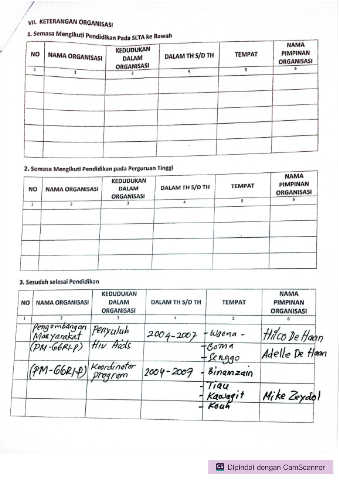 VII. KETERANGAN ORGANISASI
1. Semasa Mengikuti Pendidikan Pada SLTA ke Bawah
NO NAMA ORGANISASI KEDUDUKAN DALAM ORGANISASI DALAM TH S/D TH TEMPAT NAMA PIMPINAN ORGANISASI
1 2 3 4 5 6
2. Semasa Mengikuti Pendidikan pada Perguruan Tinggi
NO NAMA ORGANISASI KEDUDUKAN DALAM ORGANISASI DALAM TH S/D TH TEMPAT NAMA PIMPINAN ORGANISASI
1 2 3 4 5 6
3. Sesudah selesai Pendidikan
NO NAMA ORGANISASI KEDUDUKAN DALAM ORGANISASI DALAM TH S/D TH TEMPAT NAMA PIMPINAN ORGANISASI
1 2 3 4 5 6
Pengembangan Penyuluh 2004-2007 - - Hilco De Haan
Masyarakat Hiv Aids - Boma
(PM-GGRI-P) - Senggo Adelle De Haan
(PM-GGRI-P) Koordinator program 2004-2009 - Binamzain
- Tiau
- Kawagit Mike Zeydol
- Kouh
Dipindai dengan CamScanner